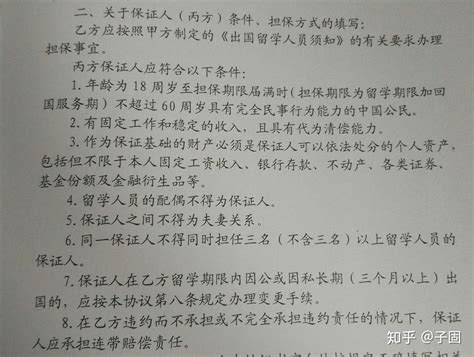 二、关于保证人（丙方）条件、担保方式的填写：
乙方应按照甲方制定的《出国留学人员须知》的有关要求办理
担保事宜。
丙方保证人应符合以下条件：
1.年龄为 18 周岁至担保期限届满时(担保期限为留学期限加回
国服务期）不超过 60 周岁具有完全民事行为能力的中国公民。
2.有固定工作和稳定的收入，且具有代为清偿能力。
3.作为保证基础的财产必须是保证人可以依法处分的个人资产，
包括但不限于本人固定工资收入、银行存款、不动产、各类证券、
基金份额及金融衍生品等。
4.留学人员的配偶不得为保证人。
5.保证人之间不得为夫妻关系。
6.同一保证人不得同时担任三名（不含三名）以上留学人员的
保证人。
7.保证人在乙方留学期限内因公或因私长期（三个月以上）出
国的，应按本协议第八条规定办理变更手续。
8.在乙方违约而不承担或不完全承担违约责任的情况下，保证
人应承担连带赔偿责任。
知乎 @子固